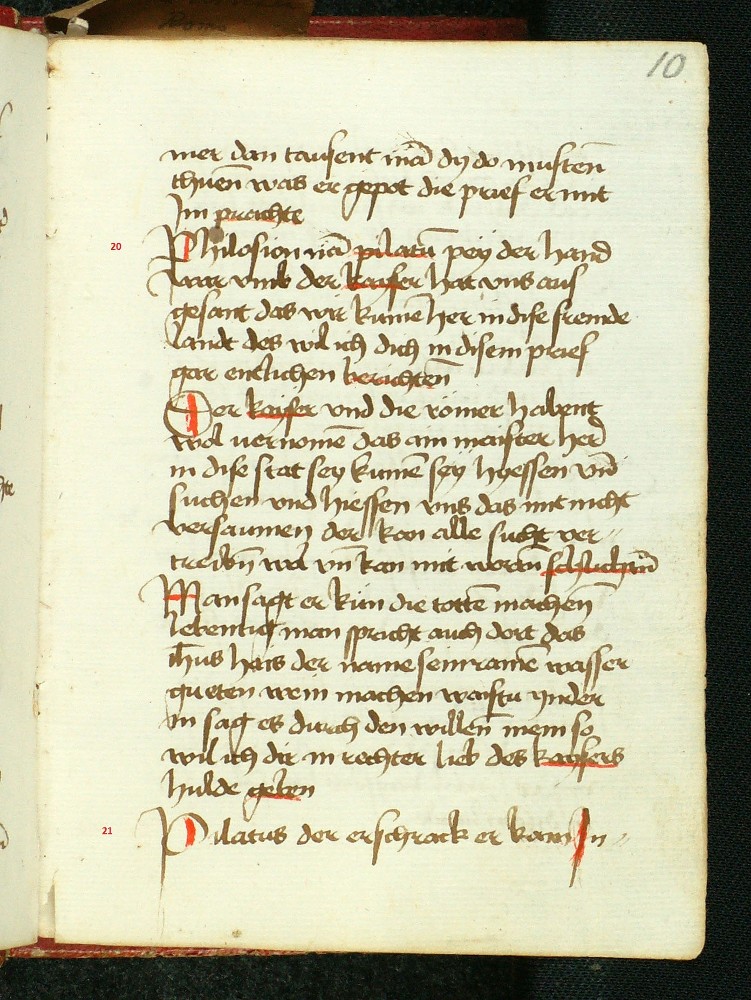 10
mer dan tausent mā dy do mustēn
thuen was er gepot die prief er mit
Im prachte
20
Philosion nā pilatū pey der hand
war vmb der kayser hat vns aus
gesant das wir kumē her in dise fremde
landt des wil ich dich in disem prief
gar entlichen berichtēn
Der kayser vnd die römer habent
wol uernomē das ain maister her
in dise stat sey kumē sey hyessen vnd
suchen vnd hiessen vns das mit nicht
versaumen der kan alle sucht ver〃
treibn wol vn̄ kan mit wortn
Man sagt er kün die totte machen
lebentig man spricht auch dort das
ih̄us hais der name sein rainē wasser
gueten wein machen waistu ynder
In sag es durch den willen mein so
wil ich dir in rechter lieb des kaysers
hulde geben
21
Pilatus der erschrack er kam In〃